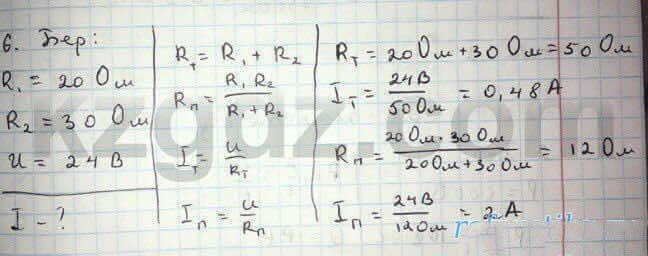 6. Бер:
R₁ = 20 Ом
R₂ = 30 Ом
U = 24 В
I - ?
Rт = R₁ + R₂
Rп = R₁ R₂ / R₁ + R₂
Iт = U / Rт
Iп = U / Rп
Rт = 20 Ом + 30 Ом = 50 Ом
Iт = 24В / 50 Ом = 0,48 А
Rп = 20 Ом · 30 Ом / 20 Ом + 30 Ом = 12 Ом
Iп = 24В / 12 Ом = 2 А
kzgdz.com